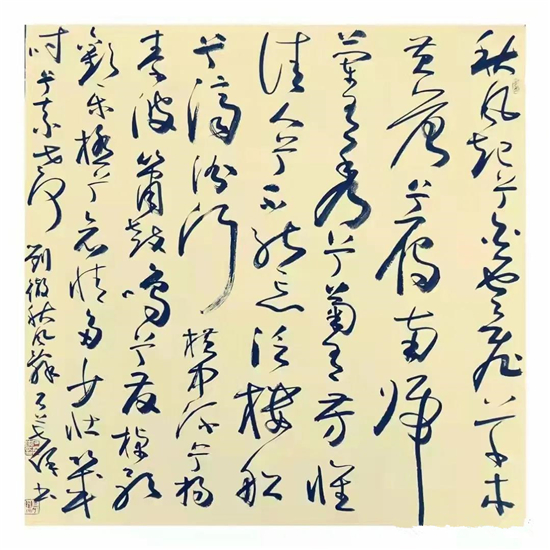 秋風起兮白雲飛草木
黄落兮雁南歸
蘭有秀兮菊有芳懷
佳人兮不能忘泛樓船
兮濟汾河横中流兮揚
素波簫鼓鳴兮發棹歌
歡樂極兮哀情多少壯幾
時兮奈老何 劉徹秋風辭 書